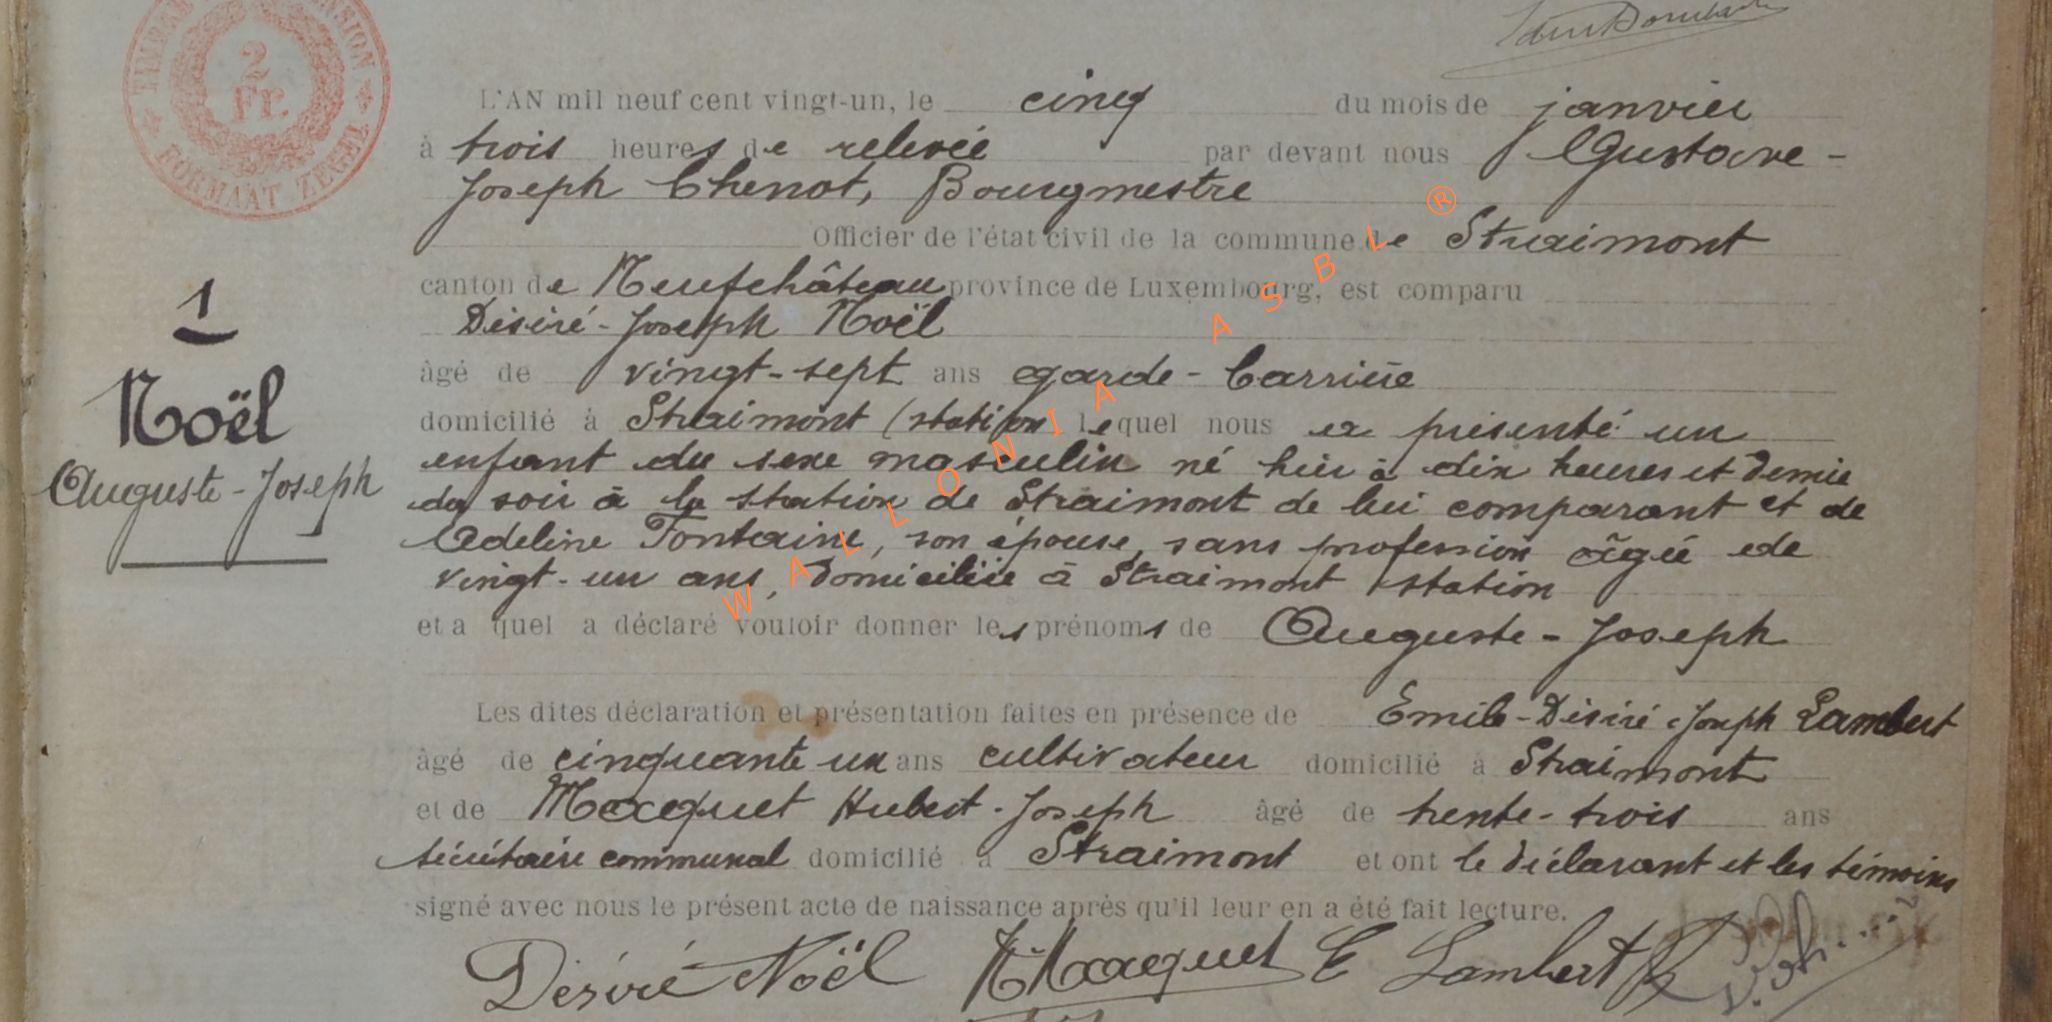 TIMBRE DIMENSION
2
Fr.
FORMAAT ZEGEL
L'AN mil neuf cent vingt-un, le cinq du mois de janvier
à trois heures de relevée par devant nous Gustave-
Joseph Chenot, Bourgmestre
Officier de l'état civil de la commune de Straimont
canton de Neufchâteau province de Luxembourg, est comparu
Désiré-Joseph Noël
âgé de vingt-sept ans garde-barrière
domicilié à Straimont (station lequel nous a présenté un
enfant du sexe masculin né hier à dix heures et demie
du soir à la station de Straimont de lui comparant et de
Adeline Fontaine, son épouse, sans profession âgée de
vingt-un ans, domiciliée à Straimont station
et a quel a déclaré vouloir donner les prénoms de Auguste-Joseph
Les dites déclaration et présentation faites en présence de Emile-Désiré-Joseph Lambert
âgé de cinquante un ans cultivateur domicilié à Straimont
et de Macquet Hubert-Joseph âgé de trente-trois ans
secrétaire communal domicilié à Straimont et ont le déclarant et les témoins
signé avec nous le présent acte de naissance après qu'il leur en a été fait lecture.
Désiré Noël H Macquet E Lambert
1
Noël
Auguste-Joseph
WALLONIA ASBL ®